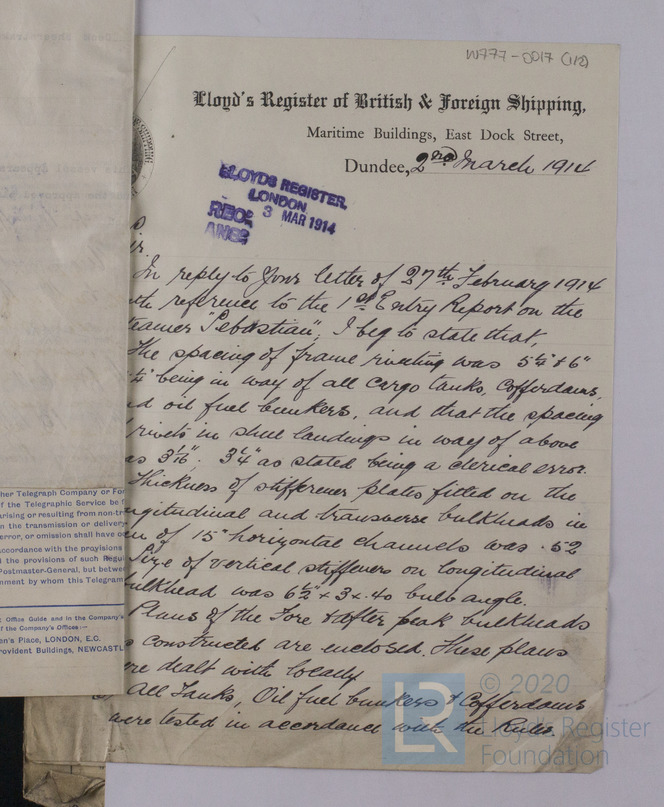 W777-0017 (1/2)
Lloyd's Register of British & Foreign Shipping,
Maritime Buildings, East Dock Street,
Dundee, 2nd March 1914
LLOYDS REGISTER.
LONDON
REC
3 MAR 1914
ANCE
In reply to your letter of 27th February 1914
reference to the 1st Entry Report on the
"Sebastian", I beg to state that,
The spacing of frame riveting was 5¼" & 6"
being in way of all cargo tanks, Cofferdams,
oil fuel bunkers, and that the spacing
rivets in shell landings in way of above
3 1/16". 3¼" as stated being a clerical error.
Thickness of stiffener plates fitted on the
and transverse bulkheads in
of 15" horizontal channels was .52
Size of vertical stiffeners on longitudinal
bulkhead was 6½" x 3 x .40 bulb angle.
Plans of the Fore & After peak bulkheads
constructed are enclosed. These plans
dealt with locally.
All Tanks, Oil fuel bunkers & Cofferdams
were tested in accordance with the Rules.
her Telegraph Company or
of the Telegraphic Service be
arising or resulting from
n the transmission or
error, or omission shall have
accordance with the provisions
the provisions of such
Postmaster-General, but
by whom this Telegram
Office Guide and in the Company's
of the Company's Offices:—
Place, LONDON, E.C.
Buildings,
LR
© 2020
Lloyd's Register
Foundation